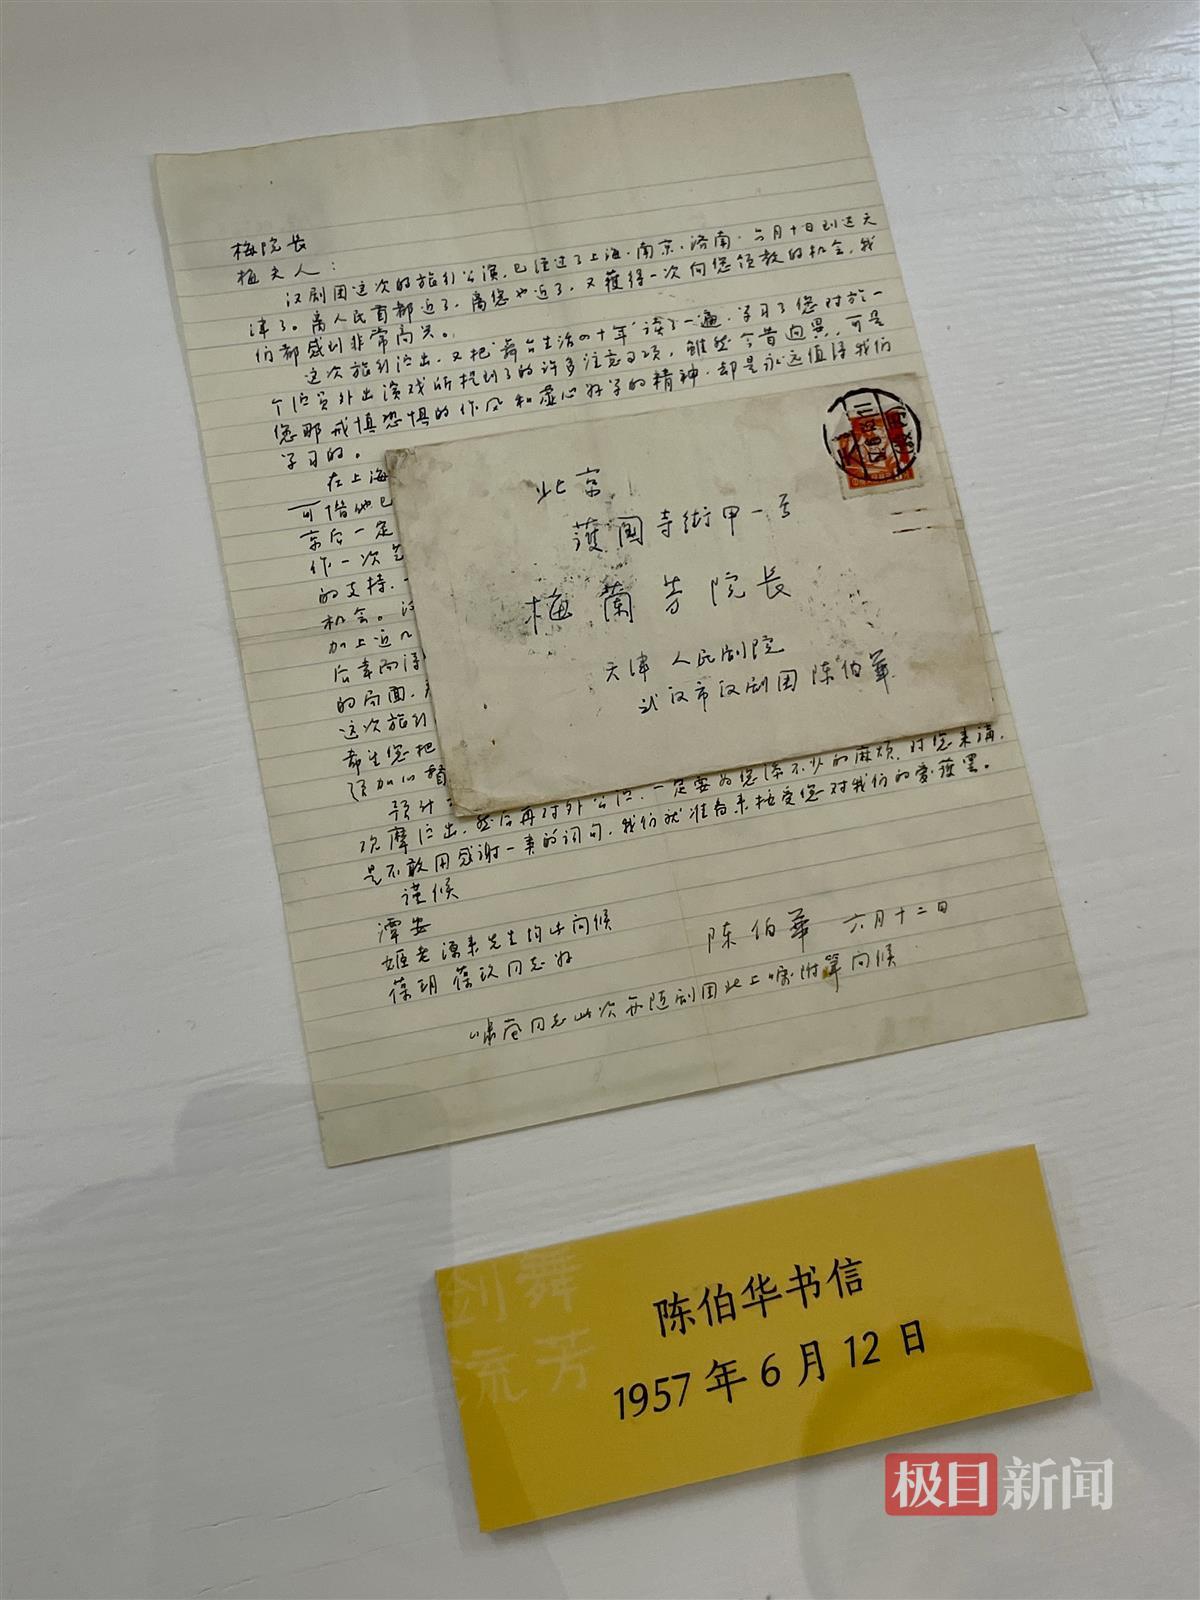 梅院长
梅夫人：
汉剧团这次的旅行公演，已经过了上海、南京、济南，六月十日到达天
津了。离人民首都近了，离您也近了，又获得一次向您领教的机会，我
们都感到非常高兴。
这次旅行演出，又把“舞台生活四十年”读了一遍，学习了您对于一
个演员外出演戏所提到了的许多注意事项，虽然今昔迥异，可是
您那戒慎恐惧的作风和虚心好学的精神，却是永远值得我们
学习的。
在上海
可惜他已
京后一定
作一次
的支持，
机会。
加上近几
后幸而得
的局面，
这次旅行
您把
预计
观摩演出，然后再对外公演，一定要为您添不少的麻烦，对您来讲，
是不敢用感谢一类的词句，我们就准备来接受您对我们的爱护罢。
谨候
潭安
姬老源来先生均此问候
葆玥葆玖同志好
陈伯華 六月十二日
啸岚同志此次亦随剧团北上嘱附笔问候
北京
護国寺街甲一号
梅蘭芳院长
天津人民剧院
武汉市汉剧团陈伯華
剑舞
流芳
陈伯华书信
1957年6月12日
极目新闻